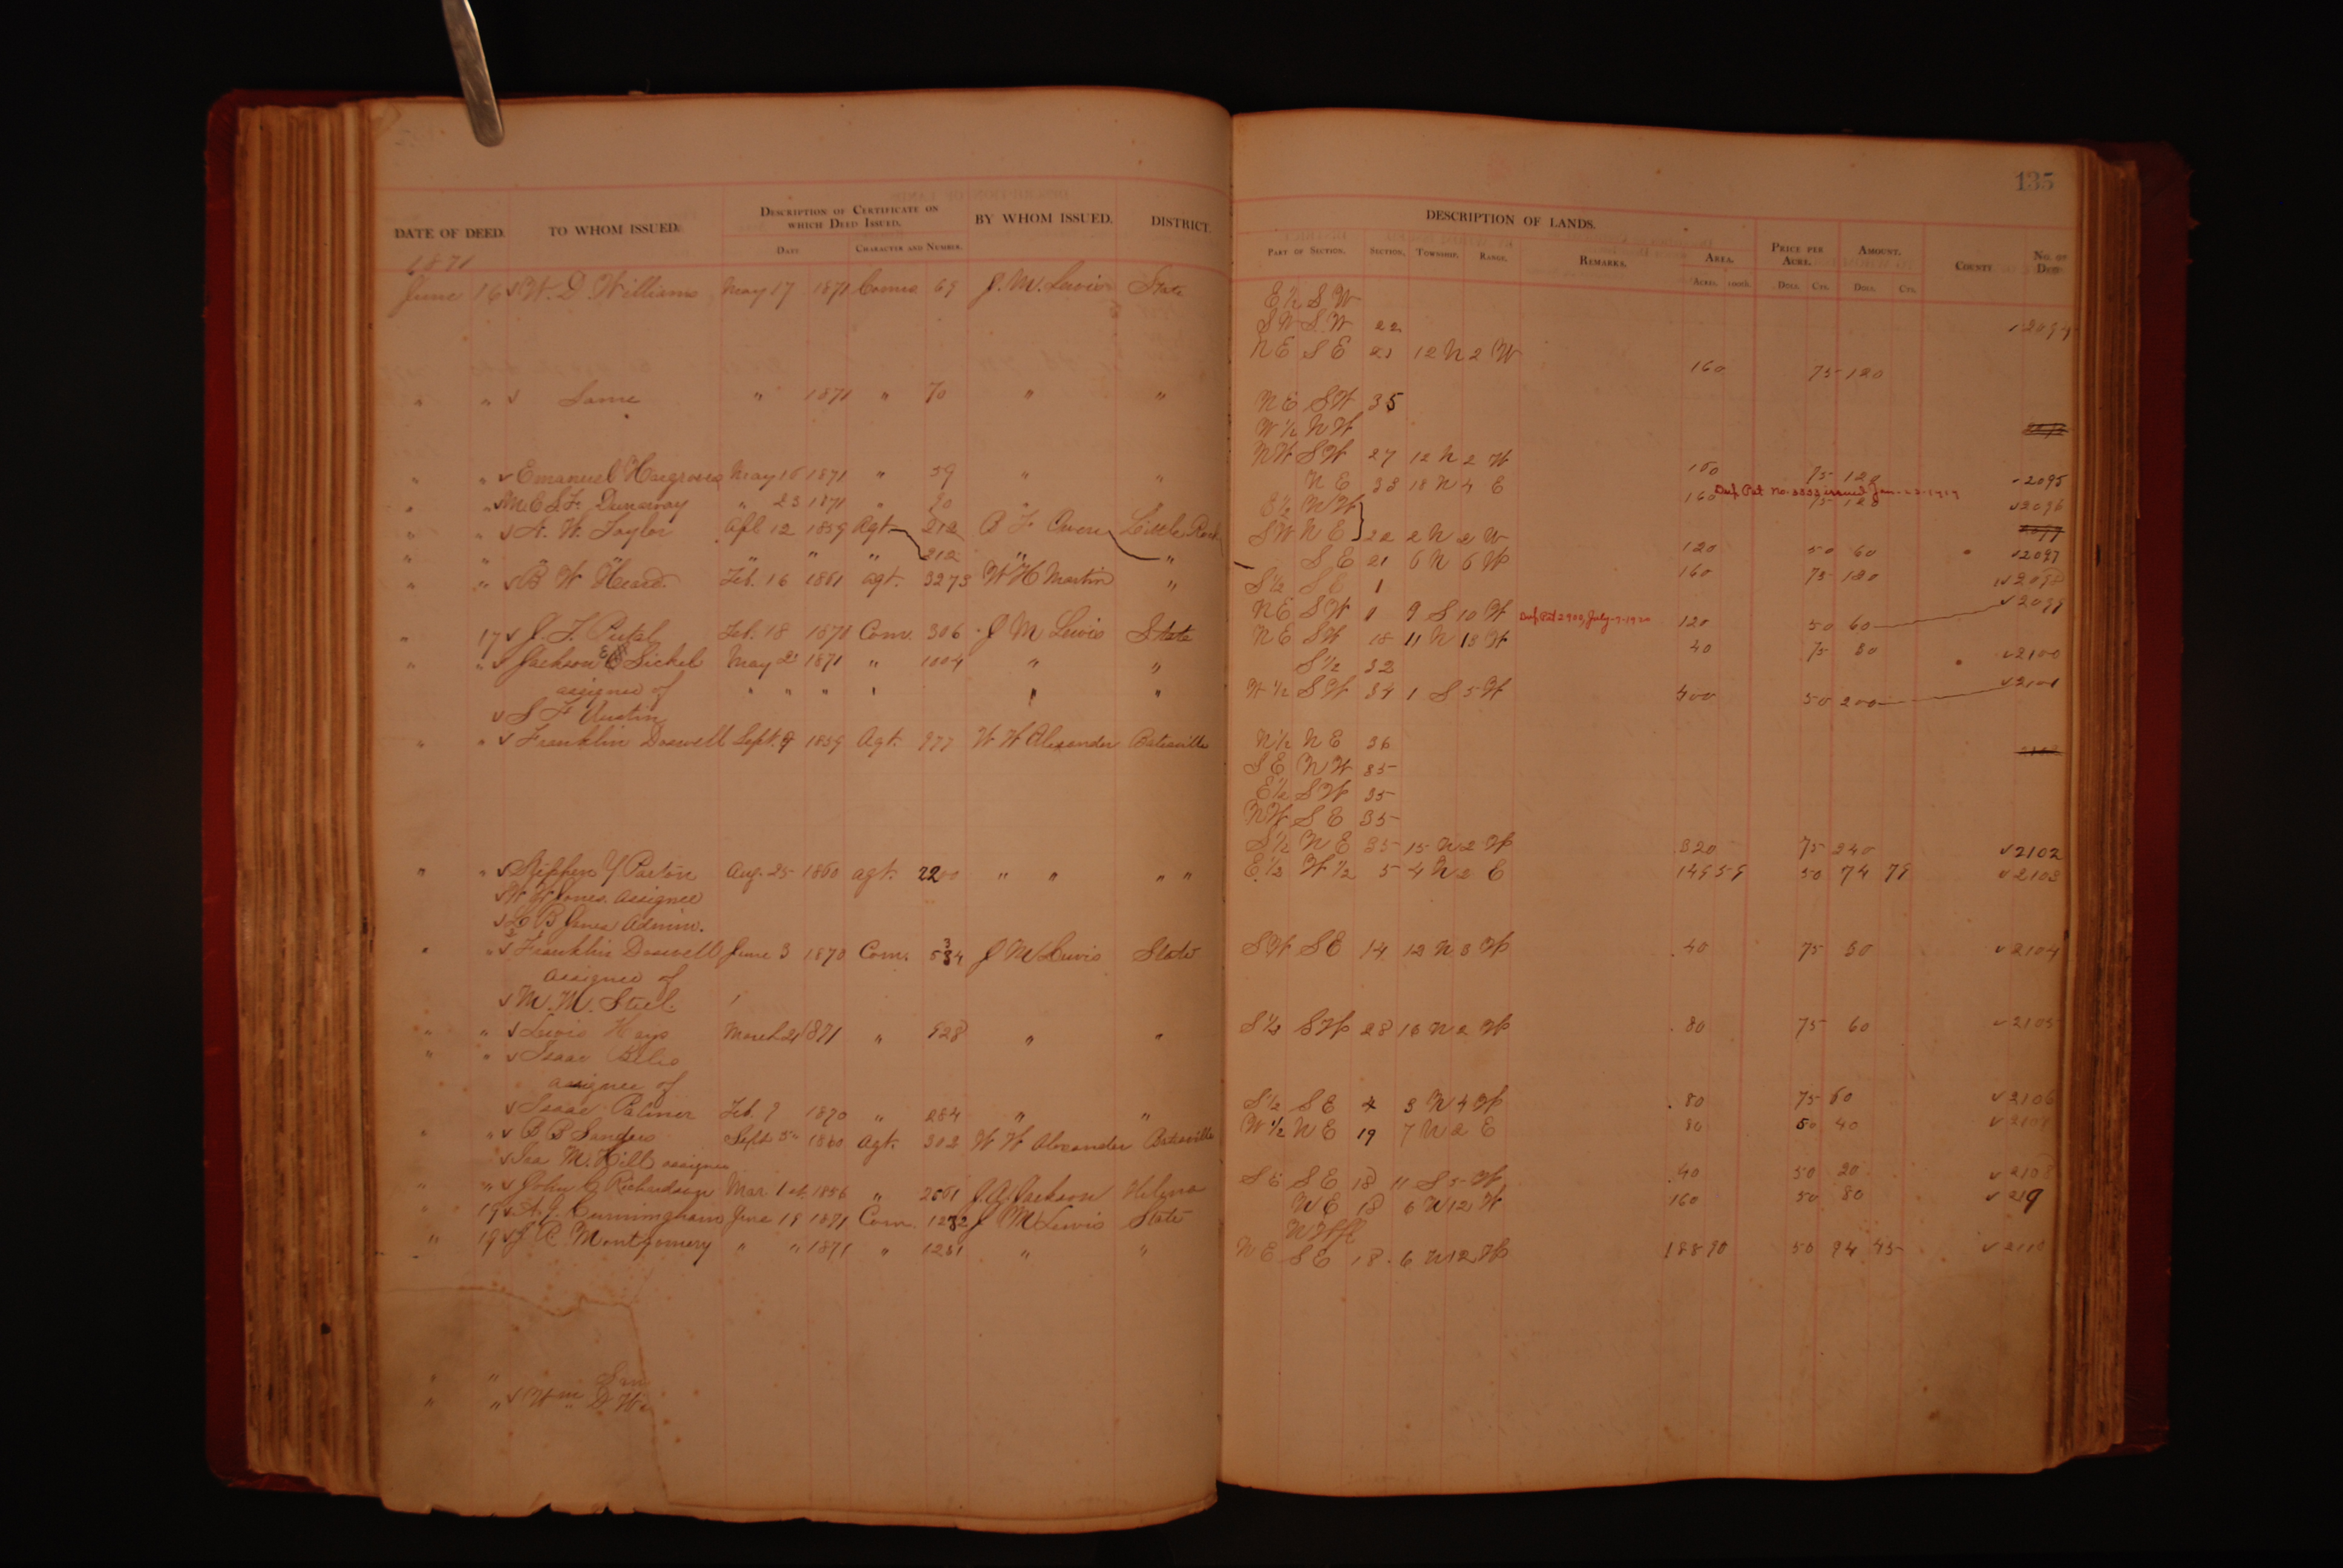 135
DESCRIPTION OF LANDS.
DATE OF DEED. TO WHOM ISSUED. DESCRIPTION OF CERTIFICATE ON WHICH DEED ISSUED. BY WHOM ISSUED. DISTRICT. PART OF SECTION. SECTION. TOWNSHIP. RANGE. REMARKS. AREA. PRICE PER ACRE. AMOUNT. COUNTY NO. OF DEED
DATE CHARACTER AND NUMBER. ACRES. 100TH. DOLS. CTS. DOLS. CTS.
1871
June 16 √ W. D. Williams May 17 1871 Comr 69 J. M. Lewis State E ½ S W √ 2094
S W S W 22
N E S E 21 12 N 2 W 160 75 120
" " √ Same " 1871 " 70 " " N E S W 35
W ½ N W
N W S W 27 12 N 2 W 160 75 120
" " √ Emanuel Hargroves May 16 1871 " 59 " " N E 33 18 N 4 E 160 75 120 - 2095
Dup. Pat No. 3333 issued Jan-23-1919
" " √ M. E. S. F. Dunaway " 23 1871 " 90 " E ½ N W √ 2096
" " √ A. W. Taylor Apl 12 1859 Agt. 212 B F Owen Little Rock S W N E 22 2 N 2 W 120 50 60 2097
" " " " " " 212 " " S E 21 6 N 6 W 160 75 120 √ 2097
" " √ B W Heard. Feb. 16 1861 agt. 3273 W H Martin " S ½ S E 1 √ 2098
N E S W 1 9 S 10 W Dup. Pat 2900, July-9-1920 120 50 60 √ 2099
" 17 √ J. F. Feb. 18 1871 Com. 306 J M Lewis State N E S W 18 11 N 13 W 40 75 30 √ 2100
" " √ Jackson E Sickel May 23 1871 " 1004 " " S ½ 32
assignee of " " " " " " W ½ S W 34 1 S 5 W 400 50 200 √ 2101
√ S F Austin
" " √ Franklin Doswell Sept. 9 1859 Agt. 977 W W Alexander Batesville N ½ N E 36
S E N W 35
E ½ S W 35
N W S E 35
S ½ N E 35 15 N 2 W 320 75 240 √ 2102
" " √ Stephen Y Parton Aug. 25 1860 agt. 2200 " " " " E ½ W ½ 5 4 N 2 E 149 59 50 74 79 √ 2103
√ W W Jones. assignee
√ L B Jones Admin.
" " √ Franklin Doswell June 3 1870 Com. 534 J M Lewis State S W S E 14 12 N 3 W 40 75 30 √ 2104
assignee of
√ M. M. Steel.
" " √ Lewis Hays March 21 1871 " 928 " " S ½ S W 28 16 N 2 W 80 75 60 √ 2105
" " √ Isaac
assignee of
√ Isaac Palmer Feb. 9 1870 " 284 " " S ½ S E 4 3 N 4 W 80 75 60 √ 2106
" " √ B B Sanders Sept 5 1860 Agt. 302 W W Alexander Batesville W ½ N E 19 7 N 2 E 80 50 40 √ 2107
√ Isa M. Hill assignee
" " √ John G Richardson Mar. 1st 1856 " 2661 J. A. Jackson Helena S E S E 18 11 S 5 W 40 50 20 √ 2108
" 19 √ A. J. Cunningham June 19 1871 Com. 1232 J M Lewis State N E 18 6 N 12 W 160 50 80 √ 219
" 19 √ J R. Montgomery " " 1871 " 1231 " " N E S E 18 6 N 12 W 188 90 50 94 45 √ 2110
" "
" " √ Wm D Wi